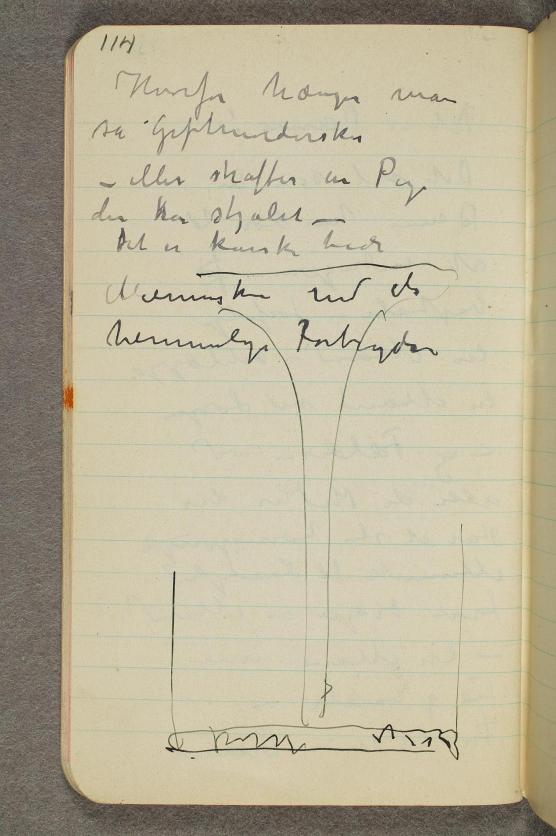 114
Hvorfor hænger man
sa Giftmordersker
– eller straffer en Pige
der har stjålet –
Det er kanske bedr
Mennesker end de
hemmelige Forbrydere